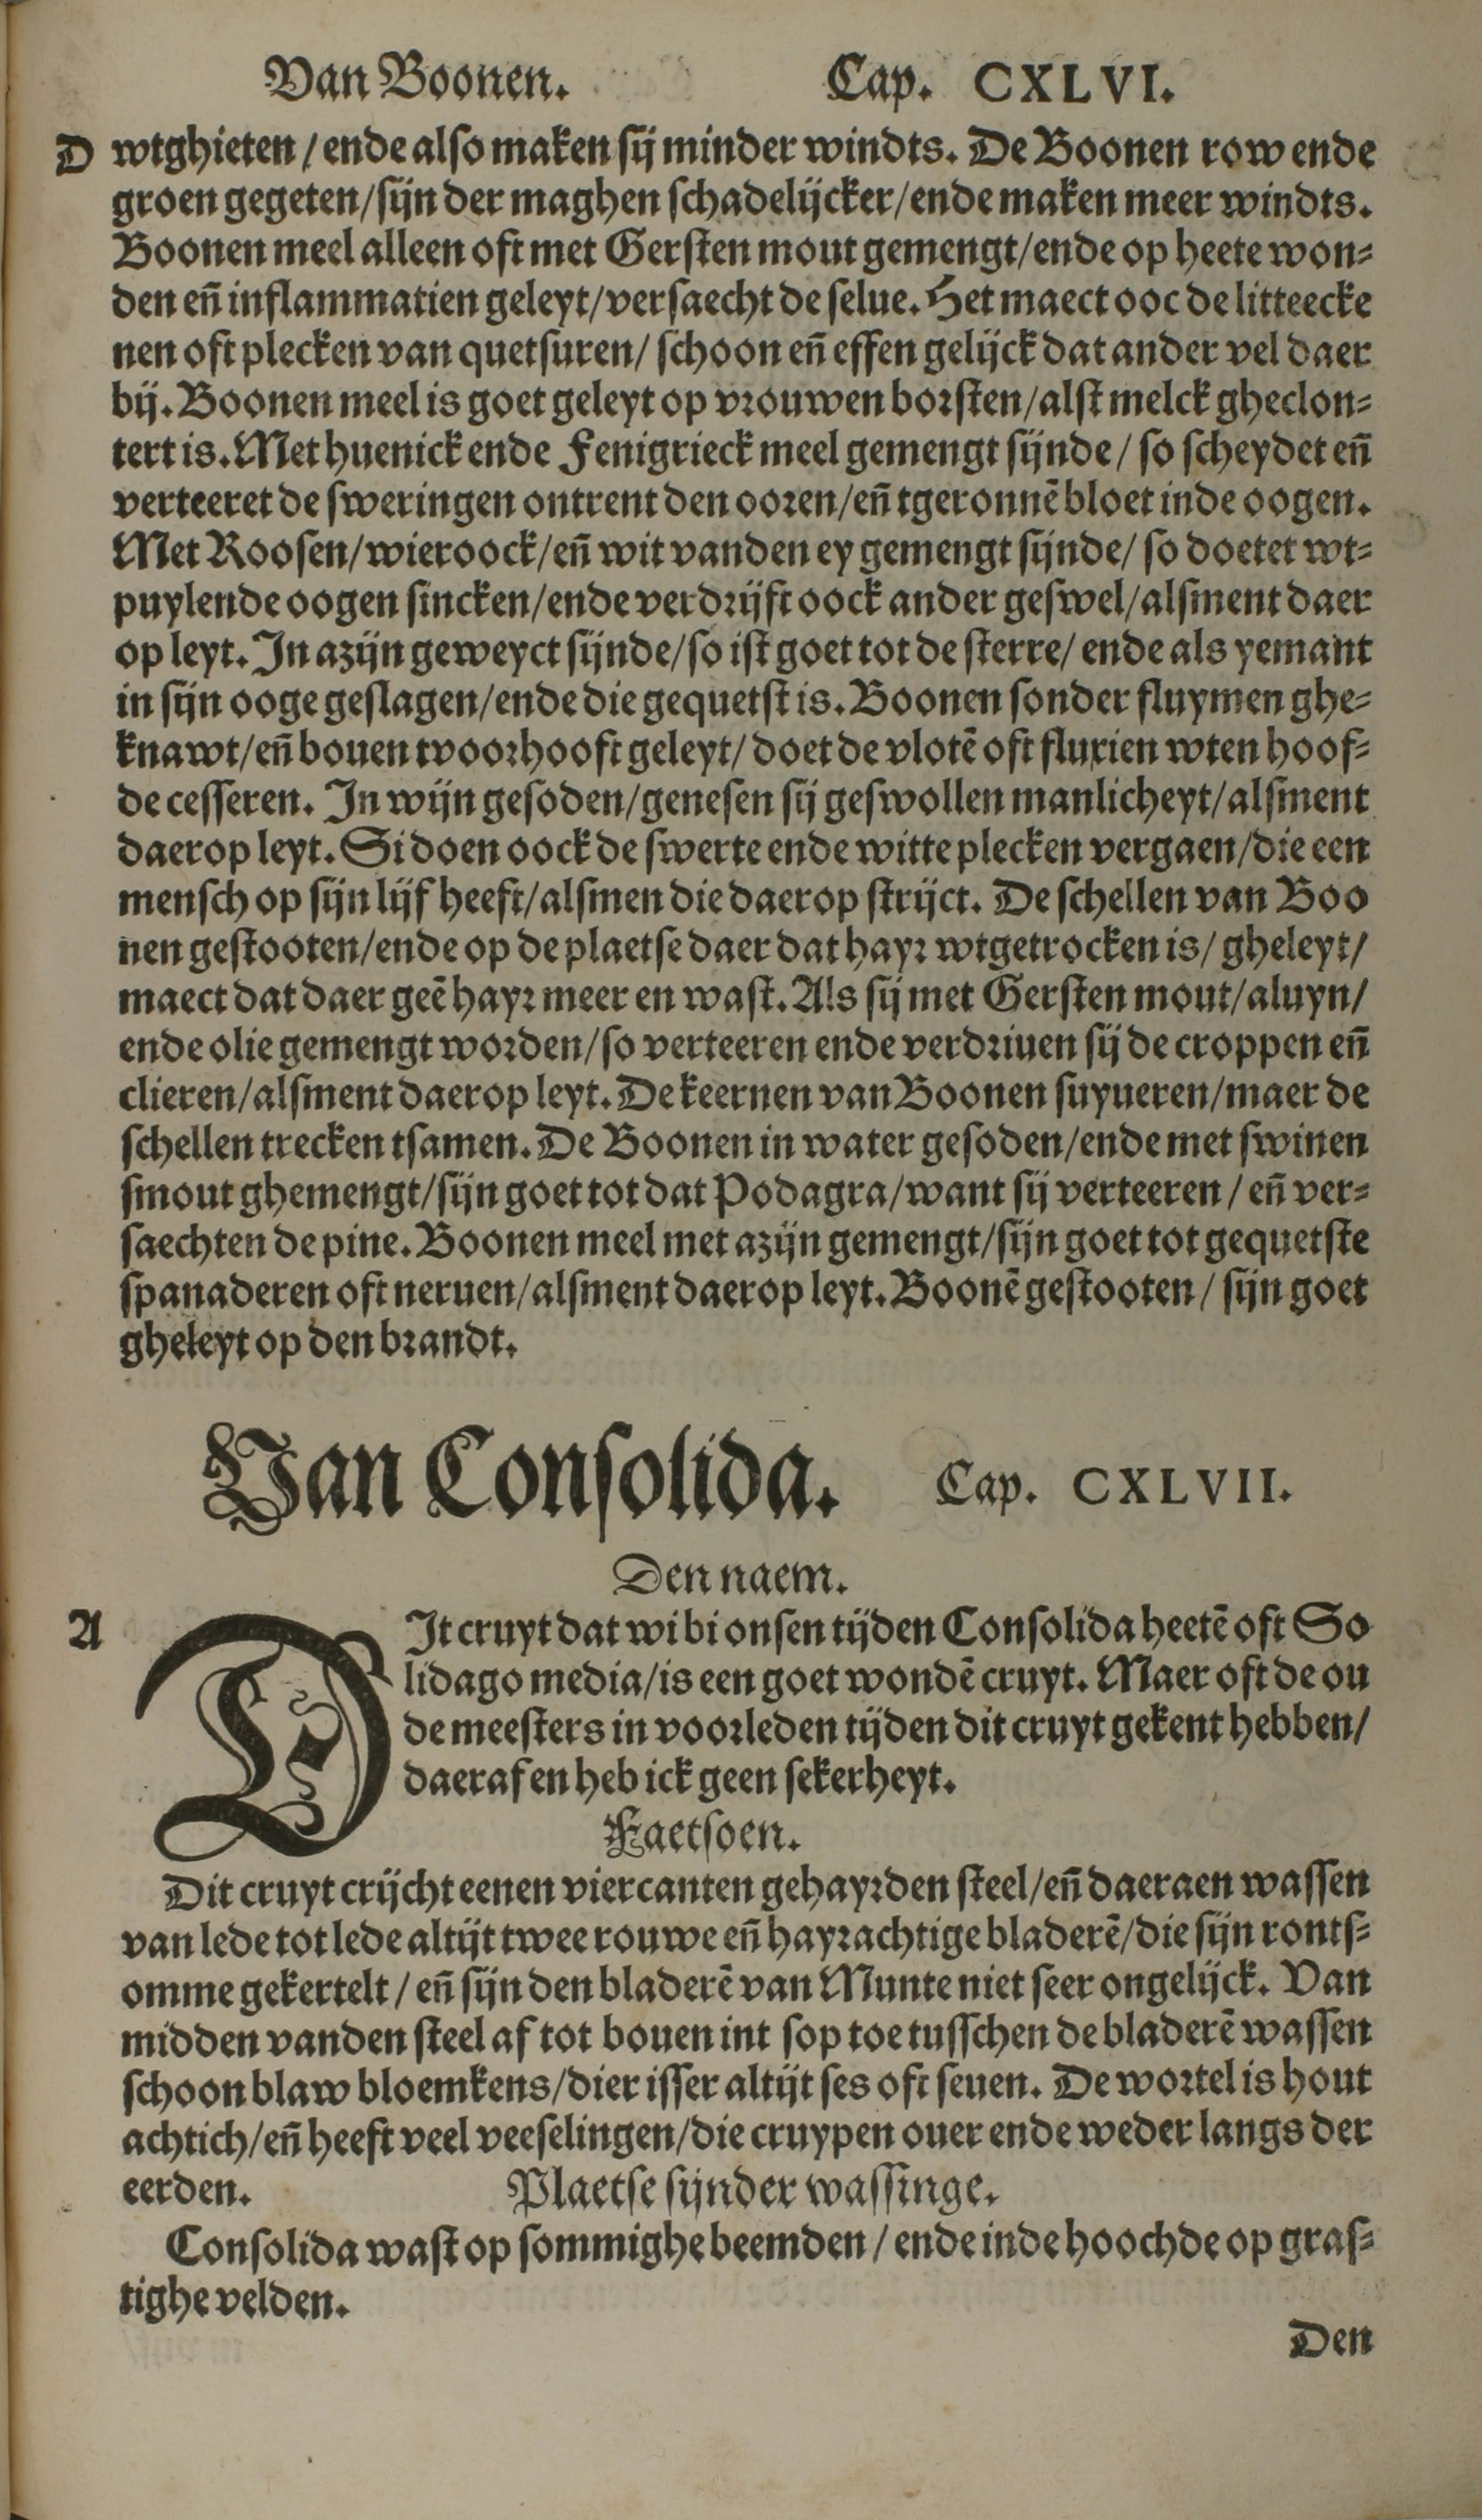 Van Boonen. Cap. CXLVI.
D wtghieten / ende also maken sij minder windts. De Boonen row ende
groen gegeten/sijn der maghen schadelijcker/ende maken meer windts.
Boonen meel alleen oft met Gersten mout gemengt/ende op heete won⸗
den eñ inflammatien geleyt/versaecht de selue. Het maect ooc de litteecke
nen oft plecken van quetsuren/ schoon eñ effen gelijck dat ander vel daer
bij. Boonen meel is goet geleyt op vrouwen borsten/alst melck gheclon⸗
tert is. Met huenick ende Fenigrieck meel gemengt sijnde/ so scheydet eñ
verteeret de sweringen ontrent den ooren/eñ tgeronnē bloet inde oogen.
Met Roosen/wieroock/eñ wit vanden ey gemengt sijnde/ so doetet wt⸗
puylende oogen sincken/ende verdrijft oock ander geswel/alsment daer
op leyt. In azijn geweyct sijnde/so ist goet tot de sterre/ ende als yemant
in sijn ooge geslagen/ende die gequetst is. Boonen sonder fluymen ghe⸗
knawt/eñ bouen tvoorhooft geleyt/ doet de vlotē oft fluxien wten hoof⸗
de cesseren. In wijn gesoden/genesen sij geswollen manlicheyt/alsment
daer op leyt. Si doen oock de swerte ende witte plecken vergaen/die een
mensch op sijn lijf heeft/alsmen die daer op strijct. De schellen van Boo
nen gestooten/ende op de plaetse daer dat hayr wtgetrocken is/ gheleyt/
maect dat daer geē hayr meer en wast. Als sij met Gersten mout/aluyn/
ende olie gemengt worden/so verteeren ende verdriuen sij de croppen eñ
clieren/alsment daer op leyt. De keernen van Boonen suyueren/maer de
schellen trecken tsamen. De Boonen in water gesoden/ende met swinen
smout ghemengt/sijn goet tot dat Podagra/want sij verteeren / eñ ver⸗
saechten de pine. Boonen meel met azijn gemengt/sijn goet tot gequetste
spanaderen oft neruen/alsment daer op leyt. Boonē gestooten / sijn goet
gheleyt op den brandt.
Van Consolida. Cap. CXLVII.
Den naem.
A DIt cruyt dat wi bi onsen tijden Consolida heetē oft So
lidago media/is een goet wondē cruyt. Maer oft de ou
de meesters in voorleden tijden dit cruyt gekent hebben/
daeraf en heb ick geen sekerheyt.
Faetsoen.
Dit cruyt crijcht eenen viercanten gehayrden steel/eñ daeraen wassen
van lede tot lede altijt twee rouwe eñ hayrachtige bladerē/die sijn ronts⸗
omme gekertelt / eñ sijn den bladerē van Munte niet seer ongelijck. Van
midden vanden steel af tot bouen int sop toe tusschen de bladerē wassen
schoon blaw bloemkens/dier isser altijt ses oft seuen. De wortel is hout
achtich/eñ heeft veel veeselingen/die cruypen ouer ende weder langs der
eerden. Plaetse sijnder wassinge.
Consolida wast op sommighe beemden / ende inde hoochde op gras⸗
tighe velden.
Den